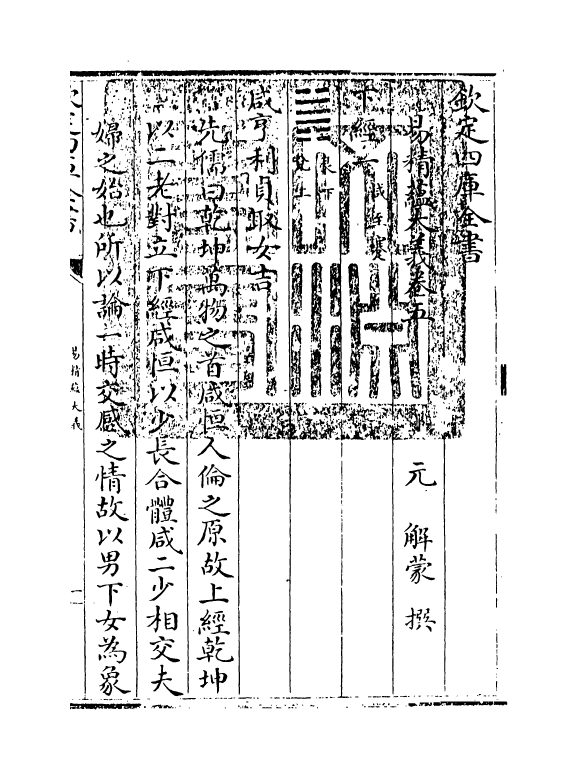 欽定四庫全書
易精蘊大義卷五
元 解蒙 撰
下經
艮下
兌上
咸亨利貞取女吉
先儒曰乾坤萬物之首咸恒人倫之原故上經乾坤
以二老對立下經咸恒以少長合體咸二少相交夫
婦之始也所以論一時交感之情故以男下女為象
易精蘊大義
一